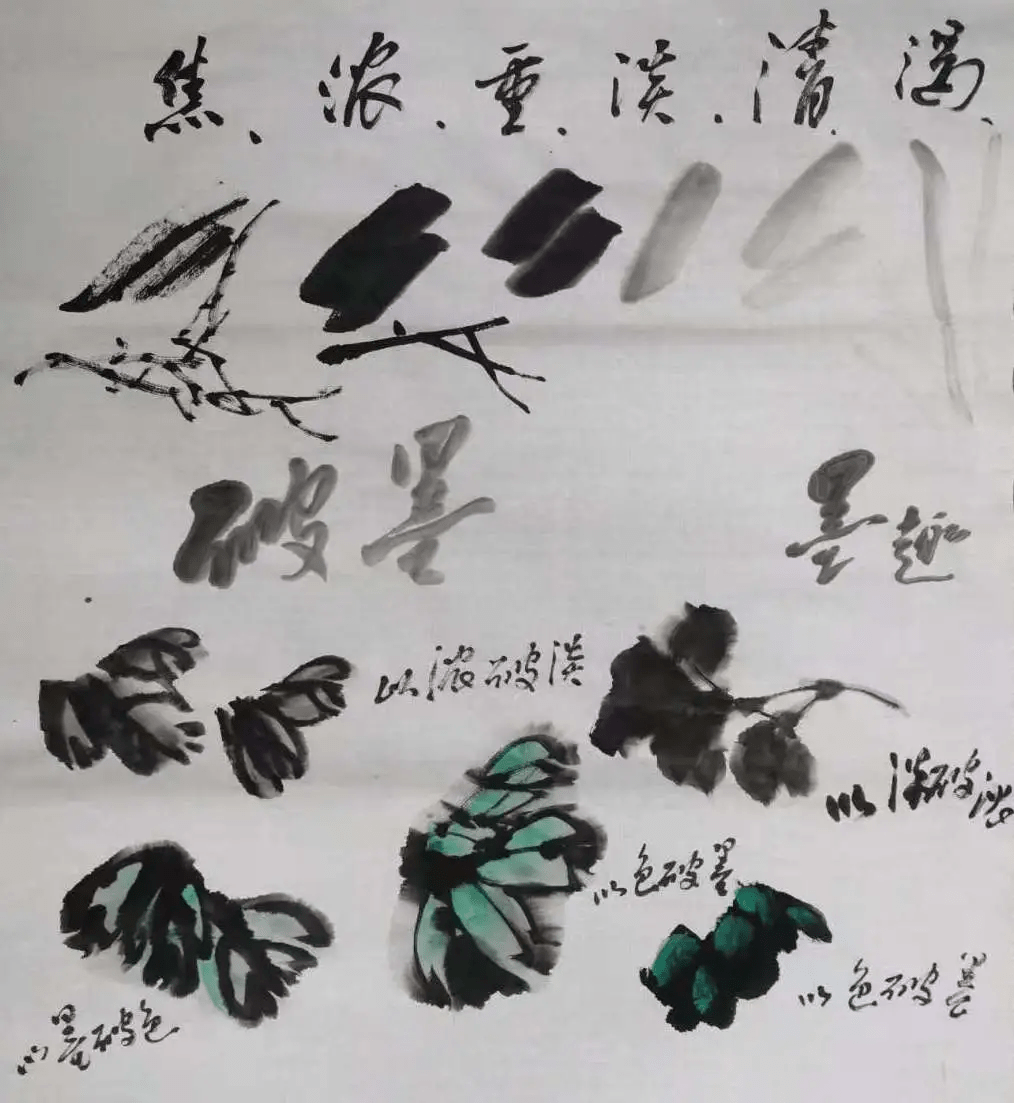 焦、浓、重、淡、清、
破墨
墨趣
以浓破淡
以淡破浓
以色破墨
以墨破色
以色破墨